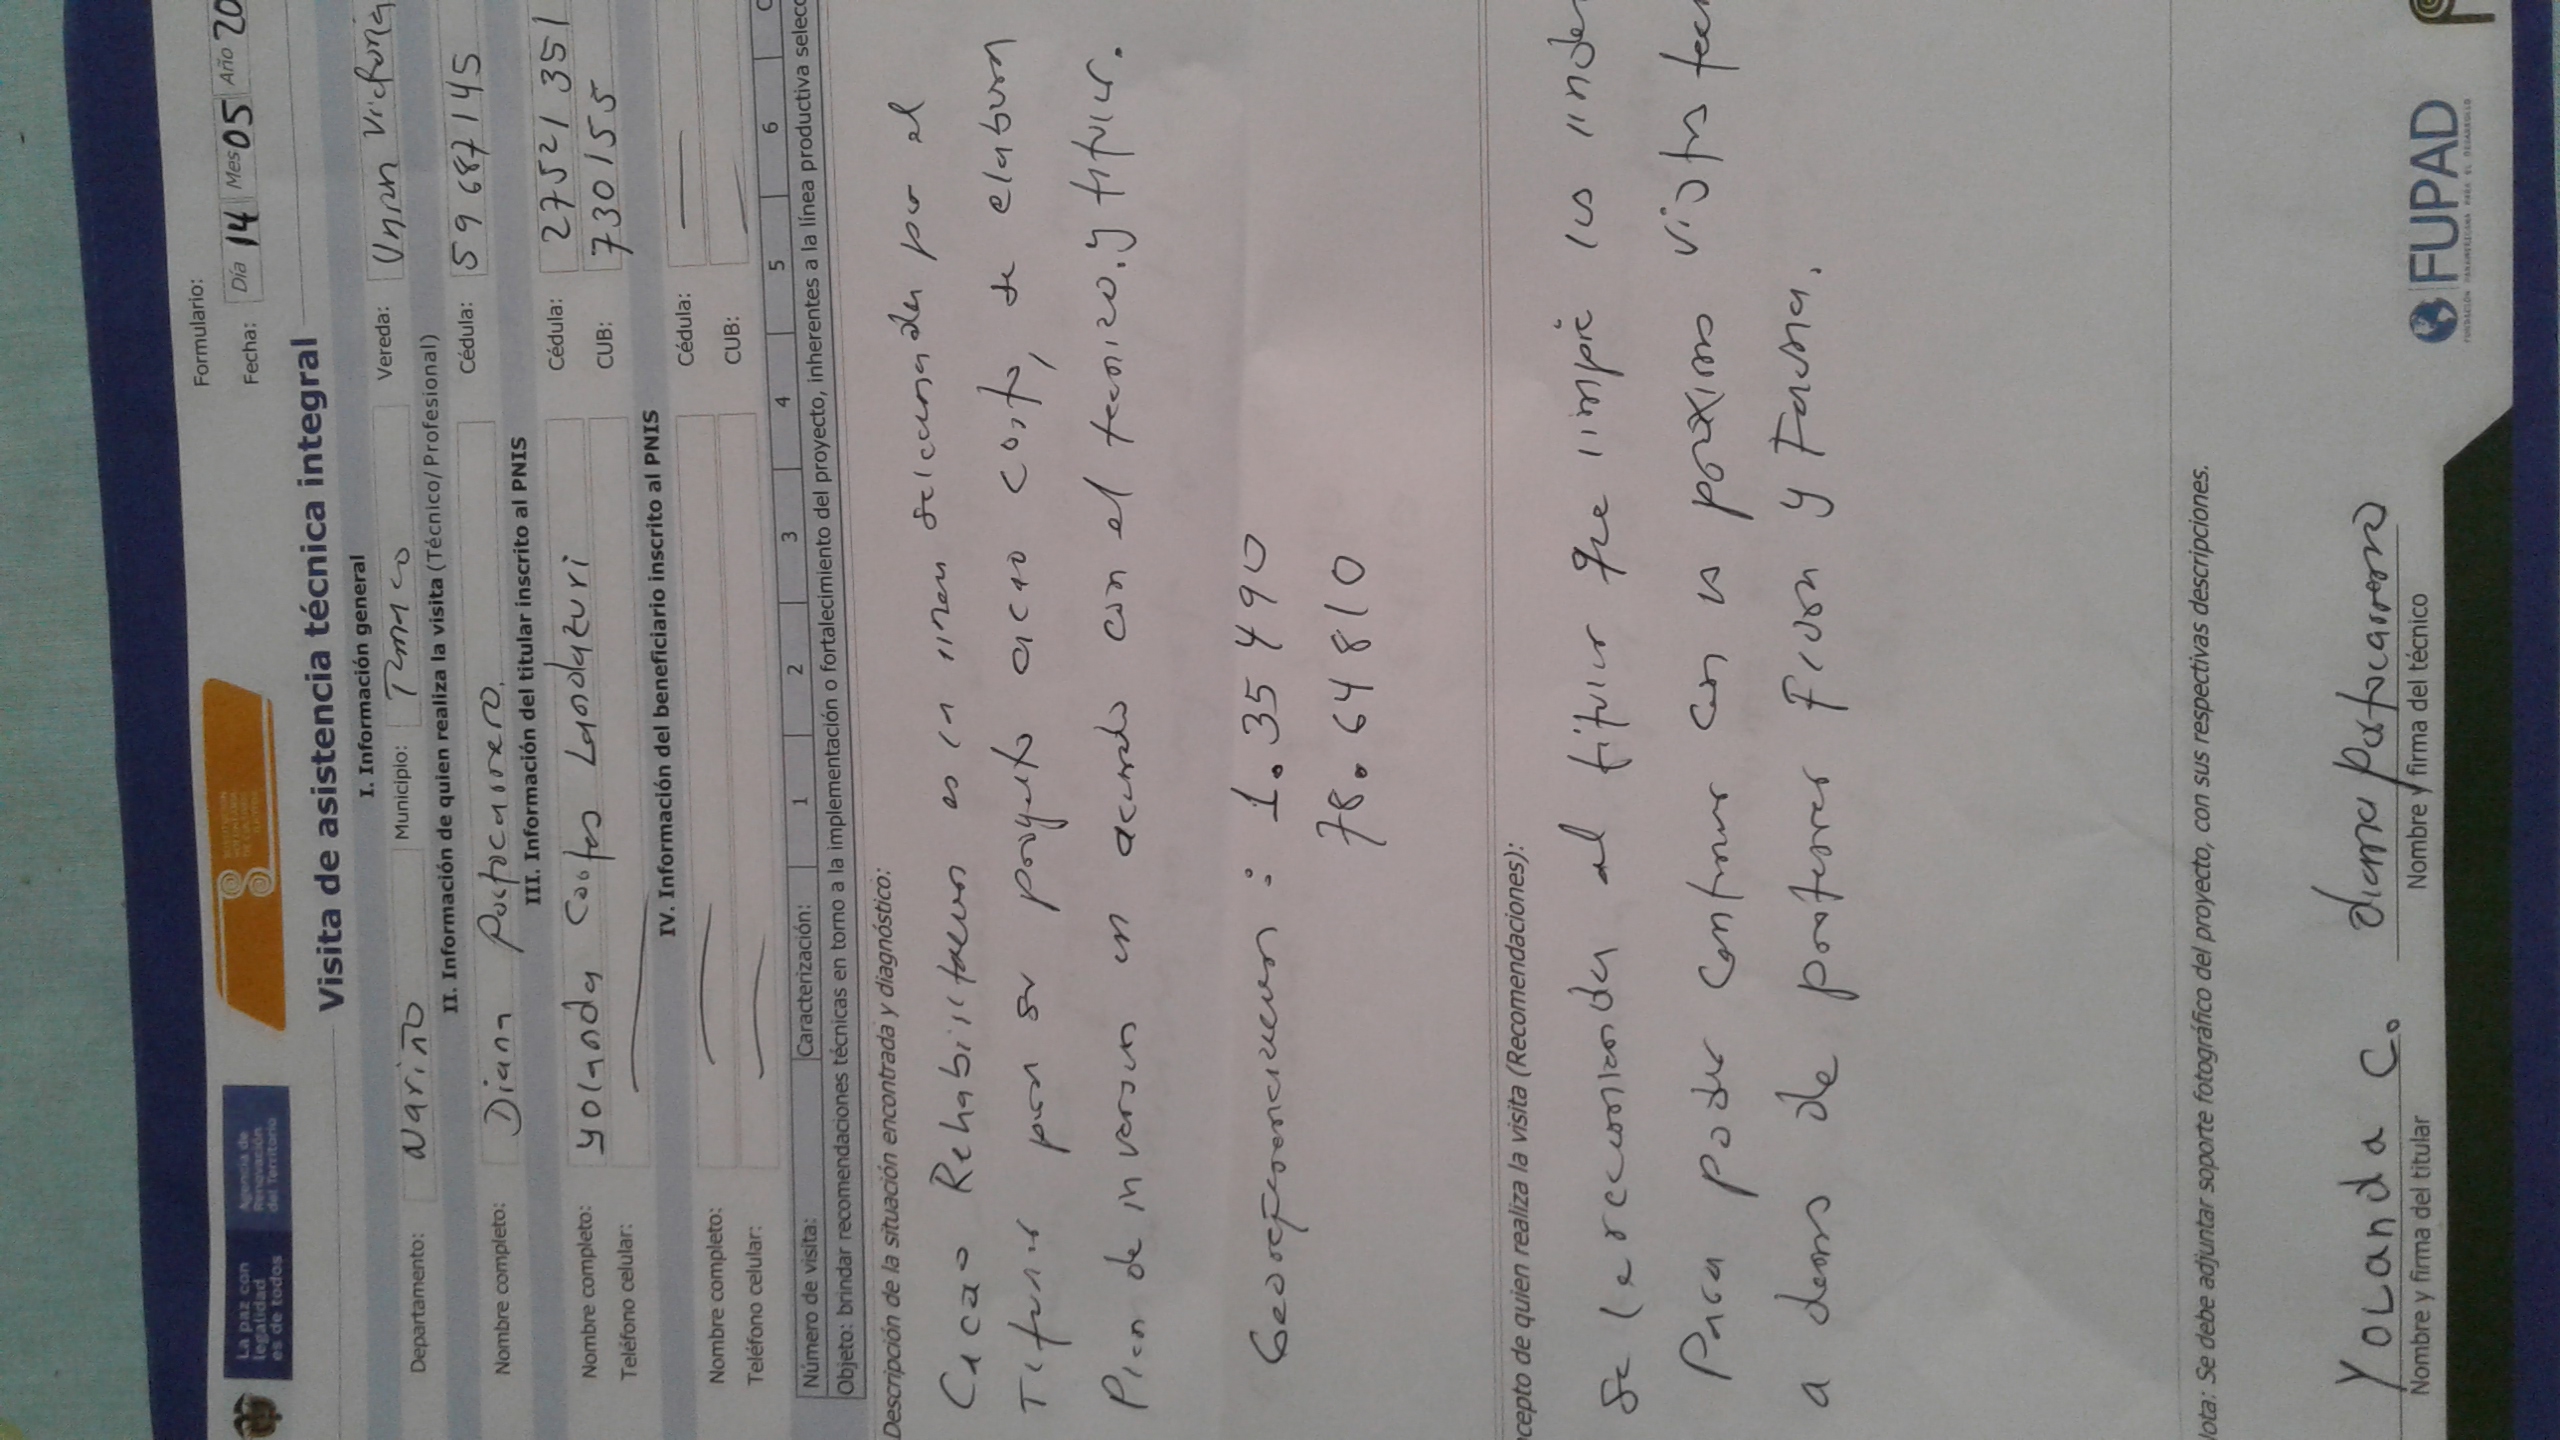 La paz con
legalidad
es de todos
Agencia de
Renovación
del Territorio
Formulario:
Fecha: Día 14 Mes 05 Año 20
Visita de asistencia técnica integral
I. Información general
Departamento: Nariño Municipio: Tumaco Vereda: Unión Victoria
II. Información de quien realiza la visita (Técnico/Profesional)
Nombre completo: Diana Portocarrero Cédula: 59687145
III. Información del titular inscrito al PNIS
Nombre completo: Yolanda Cortes Landazuri Cédula: 27521351
Teléfono celular: CUB: 730155
IV. Información del beneficiario inscrito al PNIS
Nombre completo: Cédula:
Teléfono celular: CUB:
Número de visita: Caracterización: 1 2 3 4 5 6
Objeto: brindar recomendaciones técnicas en torno a la implementación o fortalecimiento del proyecto, inherentes a la línea productiva selecc
Descripción de la situación encontrada y diagnóstico:
Cacao Rehabilitacion es la linea seleccionada por el
Titular para su proyecto a corto, se elabora
Plan de inversion en acuerdo con el tecnico. y titular.
Georeferenciacion: 1.35490
78.64810
cepto de quien realiza la visita (Recomendaciones):
Se le recomienda al titular que limpie los linder
Para poder continuar con las proximas visitas tecn
a demas de proteger Flora y Fauna.
lota: Se debe adjuntar soporte fotográfico del proyecto, con sus respectivas descripciones.
Yolanda C. diana portocarrero
Nombre y firma del titular Nombre y firma del técnico
FUPAD
FUNDACIÓN PANAMERICANA PARA EL DESARROLLO